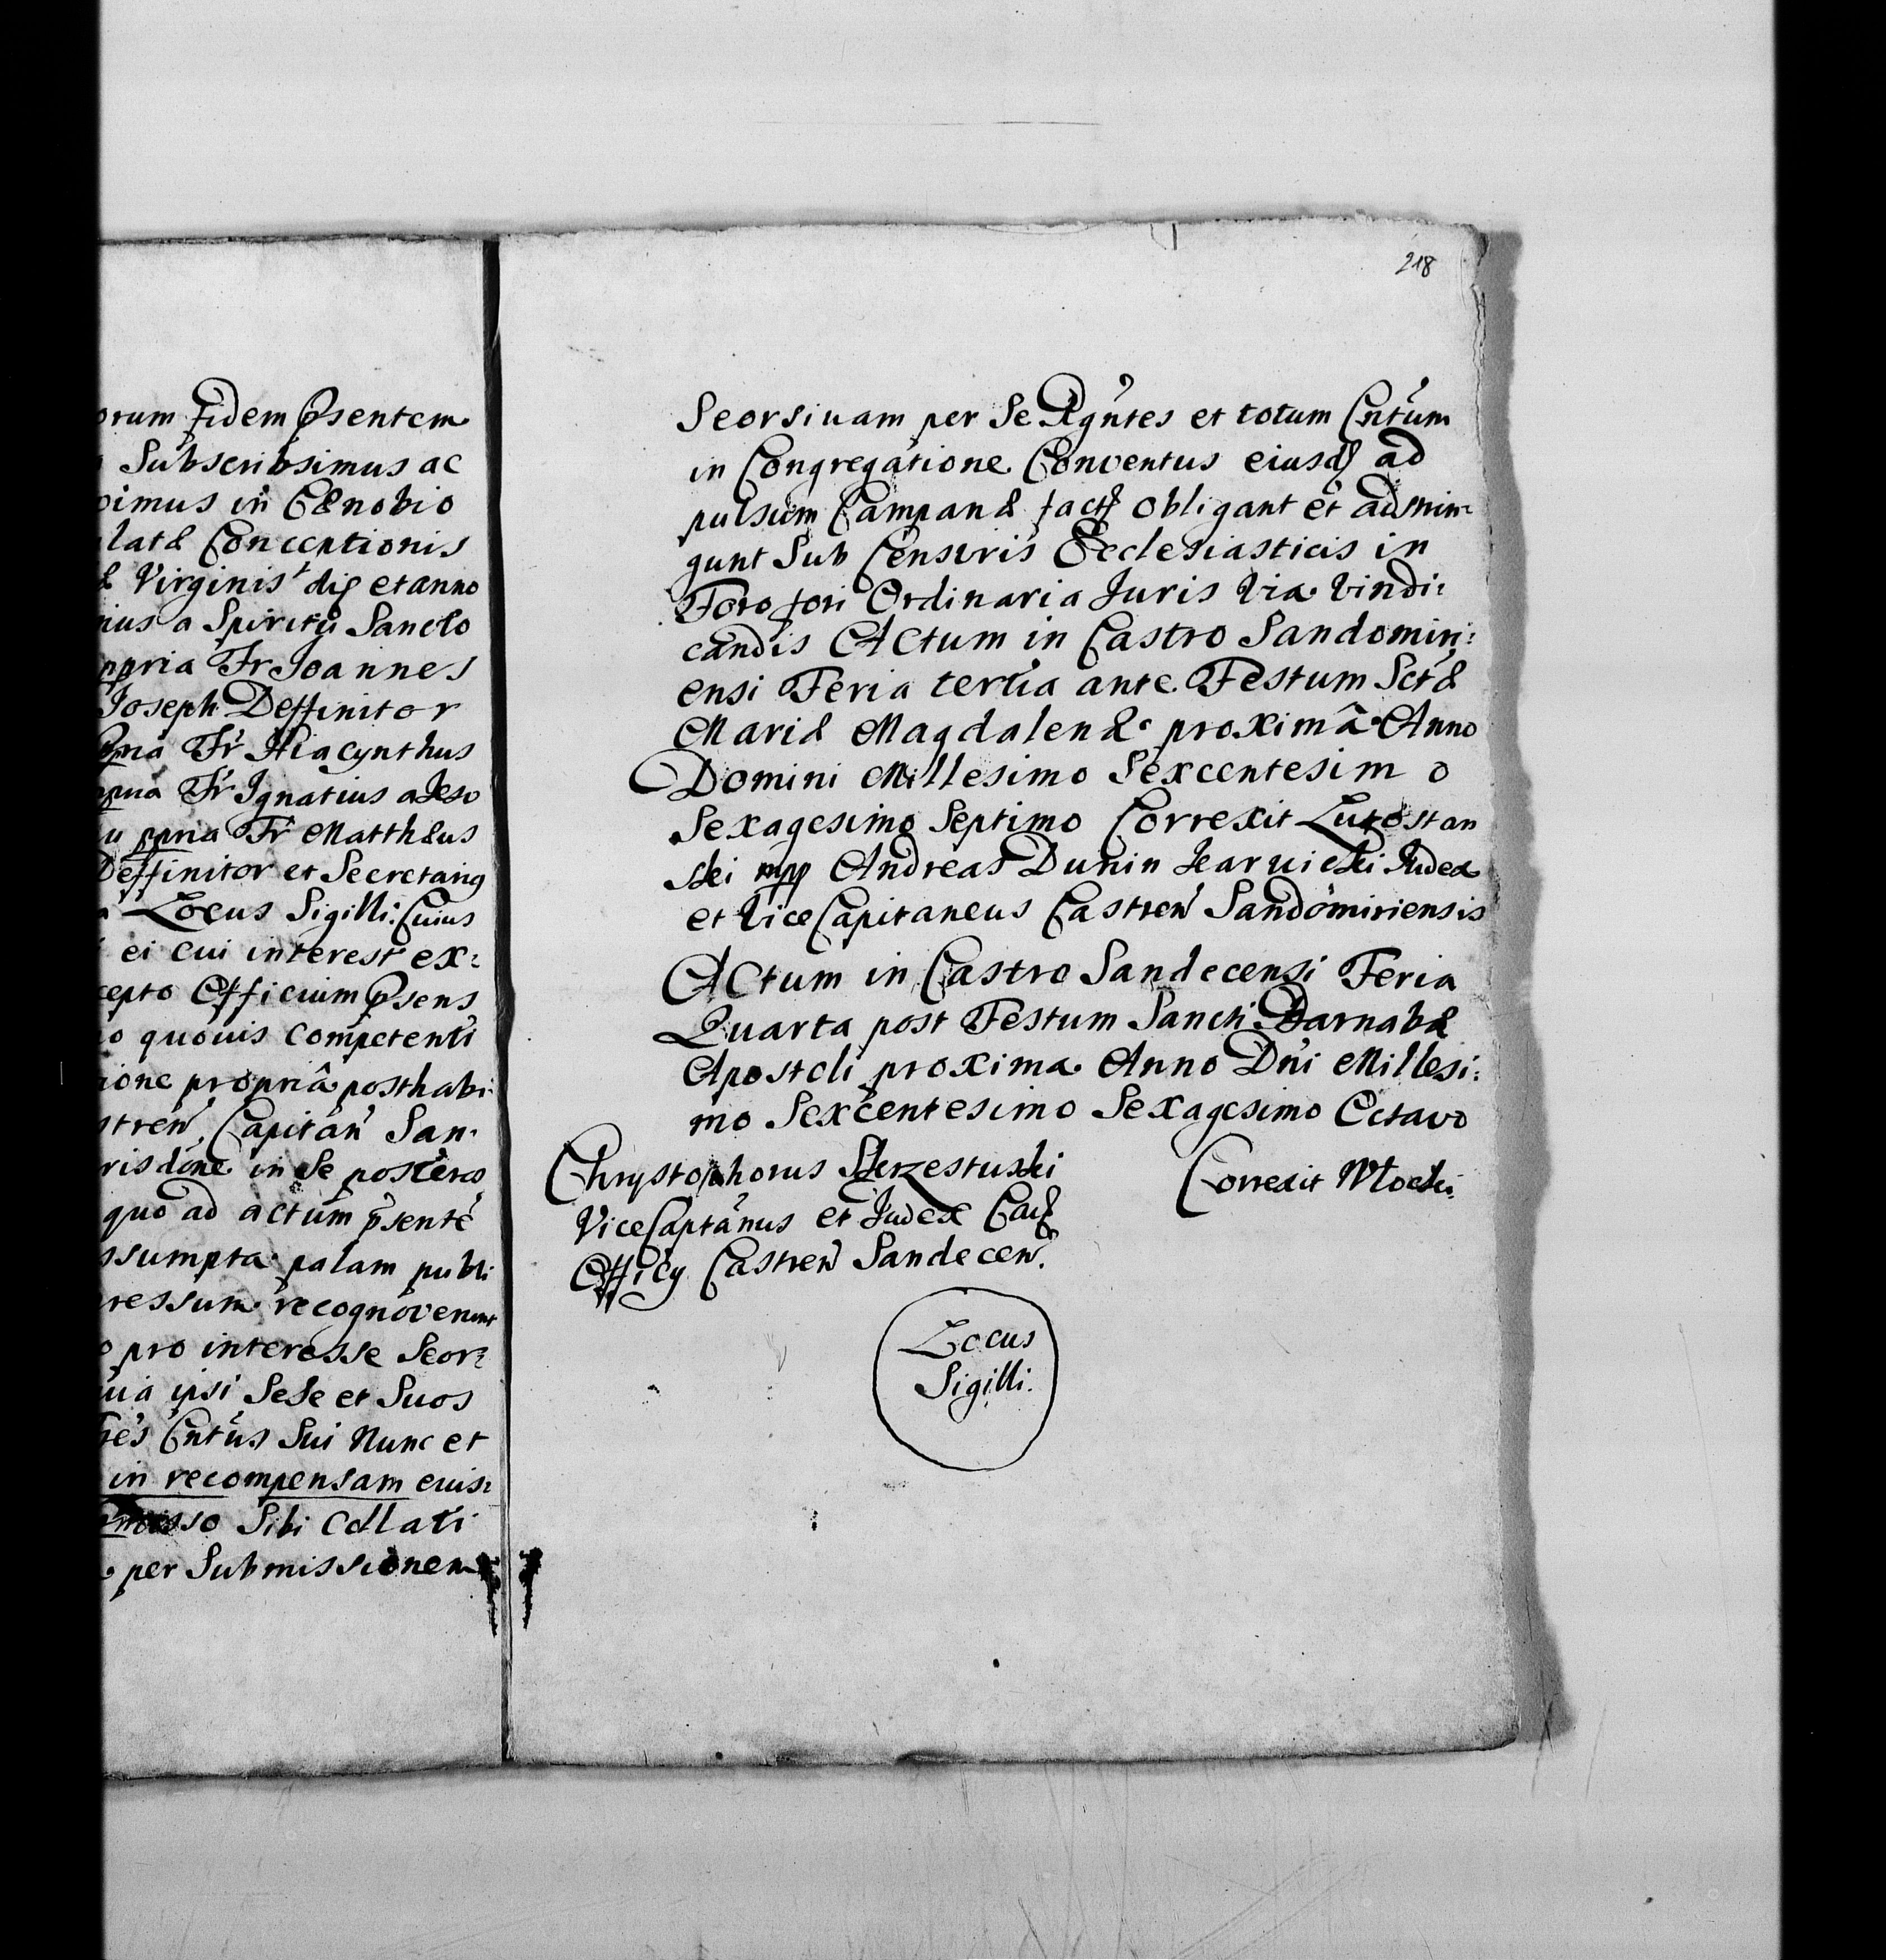 orum fidem Psentem
Subscribsimus ac
pimus in Cænobio
latæ Conceptionis
æ Virginis die et anno
nius a Spiritu Sancto
ppria Fr Joannes
Joseph Deffinitor
ppria Fr Hiacynthus
ppria Fr Ignatius a Jesv
u ppria Fr Matthæus
Deffinitor et Secretarig
Locus Sigilli: Cuius
ei cui interest ex:
cepto Officium Psens
o quovis Competenti
ione propriâ posthabi:
stren Capitan San:
risdone in Se posteros
quo ad actum psente
ssumpta palam publi
ressum recognoverunt
o pro interesse Seor:
ua ipsi Sese et Suos
res Cntus Sui Nunc et
in recompensam eius:
sso Sibi Collati
per Submissionem
218
Seorsivam per Se Agntes et totum Cntum
in Congregatione Conventus eiusd ad
pulsum Campanæ fact Obligant et adstrin:
gunt Sub Censuris Ecclesiasticis in
Foro fori Ordinaria Juris Via Vindi:
candis Actum in Castro Sandomiri:
ensi Feria tertia ante Festum Sctæ
Mariæ Magdalenæ proximâ Anno
Domini Millesimo Sexcentesimo
Sexagesimo Septimo Correxit Lutostan
ski mpp Andreas Dunin Karwicki Judex
et Vice Capitaneus Castren Sandomiriensis
Actum in Castro Sandecensi Feria
Quarta post Festum Sancti Barnabæ
Apostoli proxima Anno Dni Millesi:
mo Sexcentesimo Sexagesimo Octavo
Chrystophorus Skrzestuski Correxit Wlocki
Vice Captanus et Judex Caus
Officy Castren Sandecen.
Locus
Sigilli.